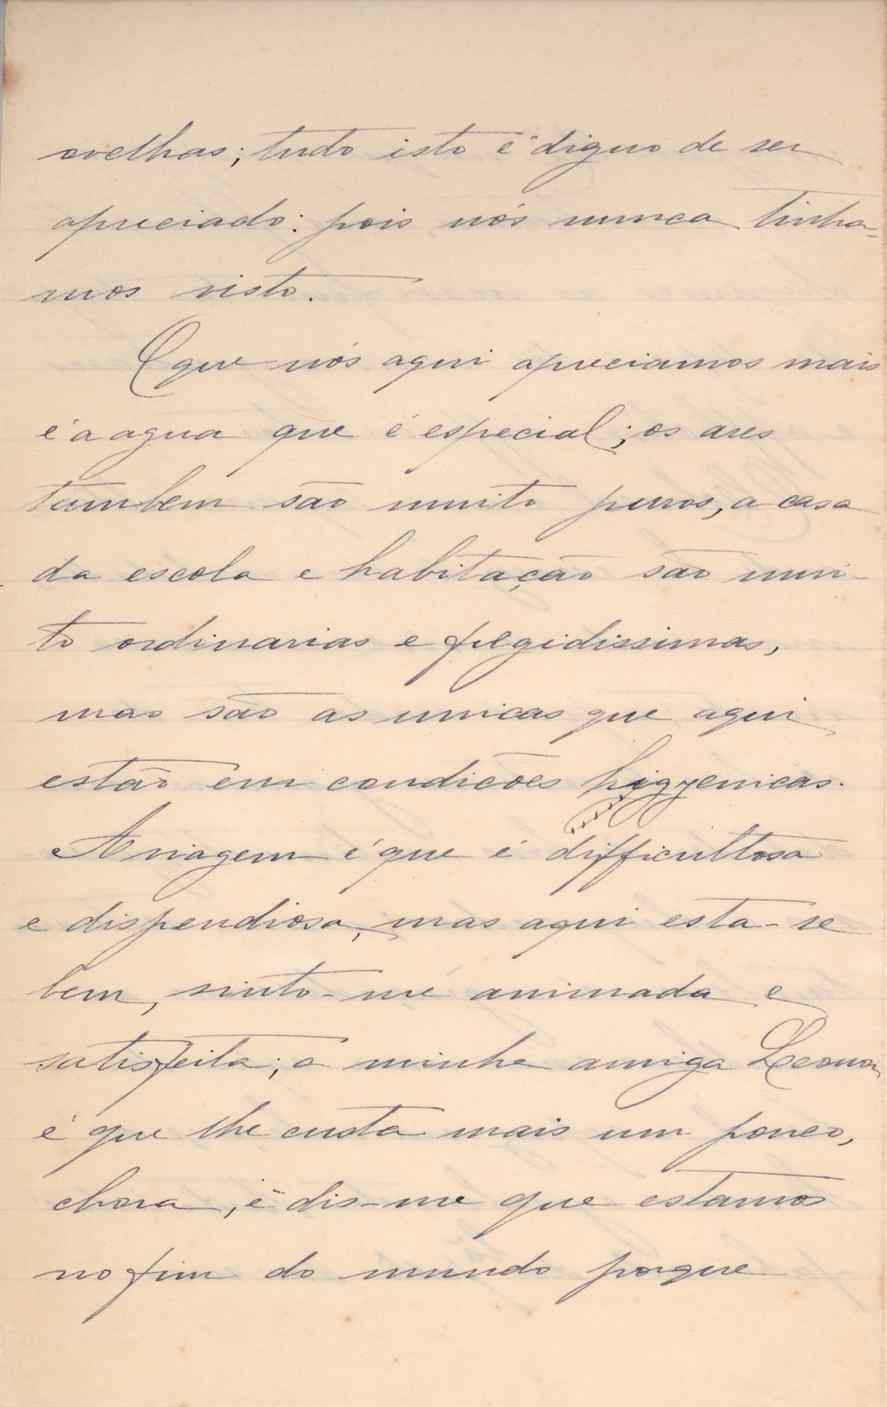 ovelhas; tudo isto é digno de ser
apreciado: pois nós nunca tinha-
mos visto.
O que nós aqui apreciamos mais
é a agua que é especial; os ares
tambem são muito puros, a casa
da escola e habitação são mui-
to ordinarias e filgidissimas,
mas são as unicas que aqui
estão em condicões higyenicas.
A viagem é que é difficultosa
e dispendiosa, mas aqui esta-se
bem, sinto-me animada e
satisfeita; a minha amiga Leonor
é que lhe custa mais um pouco,
chora, e dis-me que estamos
no fim do mundo porque